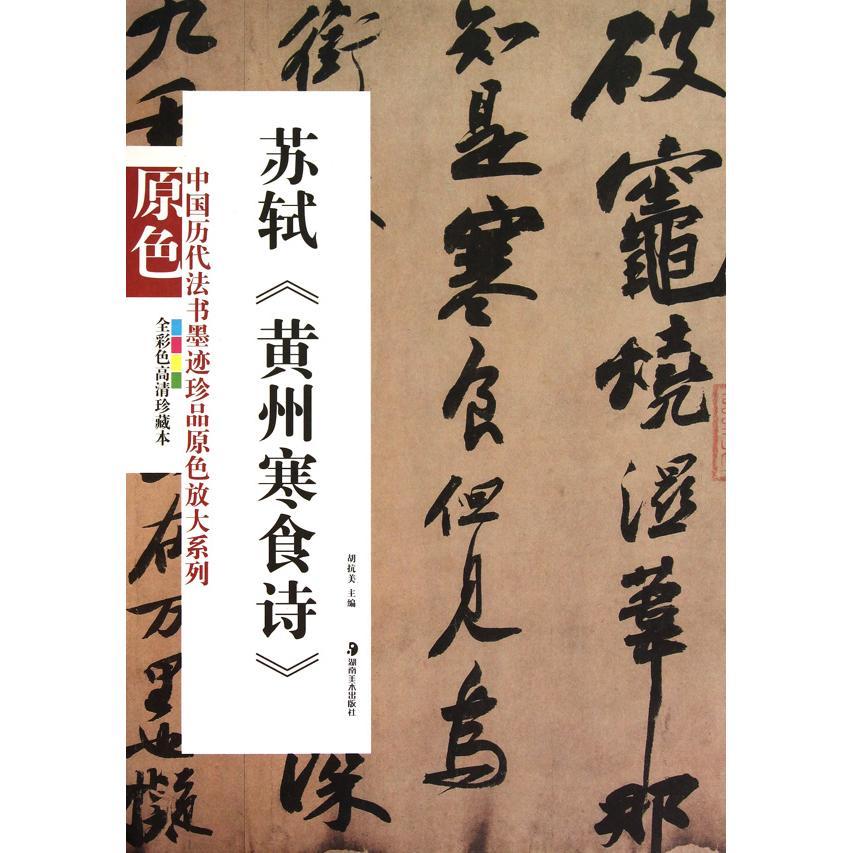 破竈燒濕葦那
知是寒食但見烏
衔
深
九重
在万里也擬
苏轼《黄州寒食诗》
胡抗美 主编
湖南美术出版社
中国历代法书墨迹珍品原色放大系列
原色
全彩色高清珍藏本